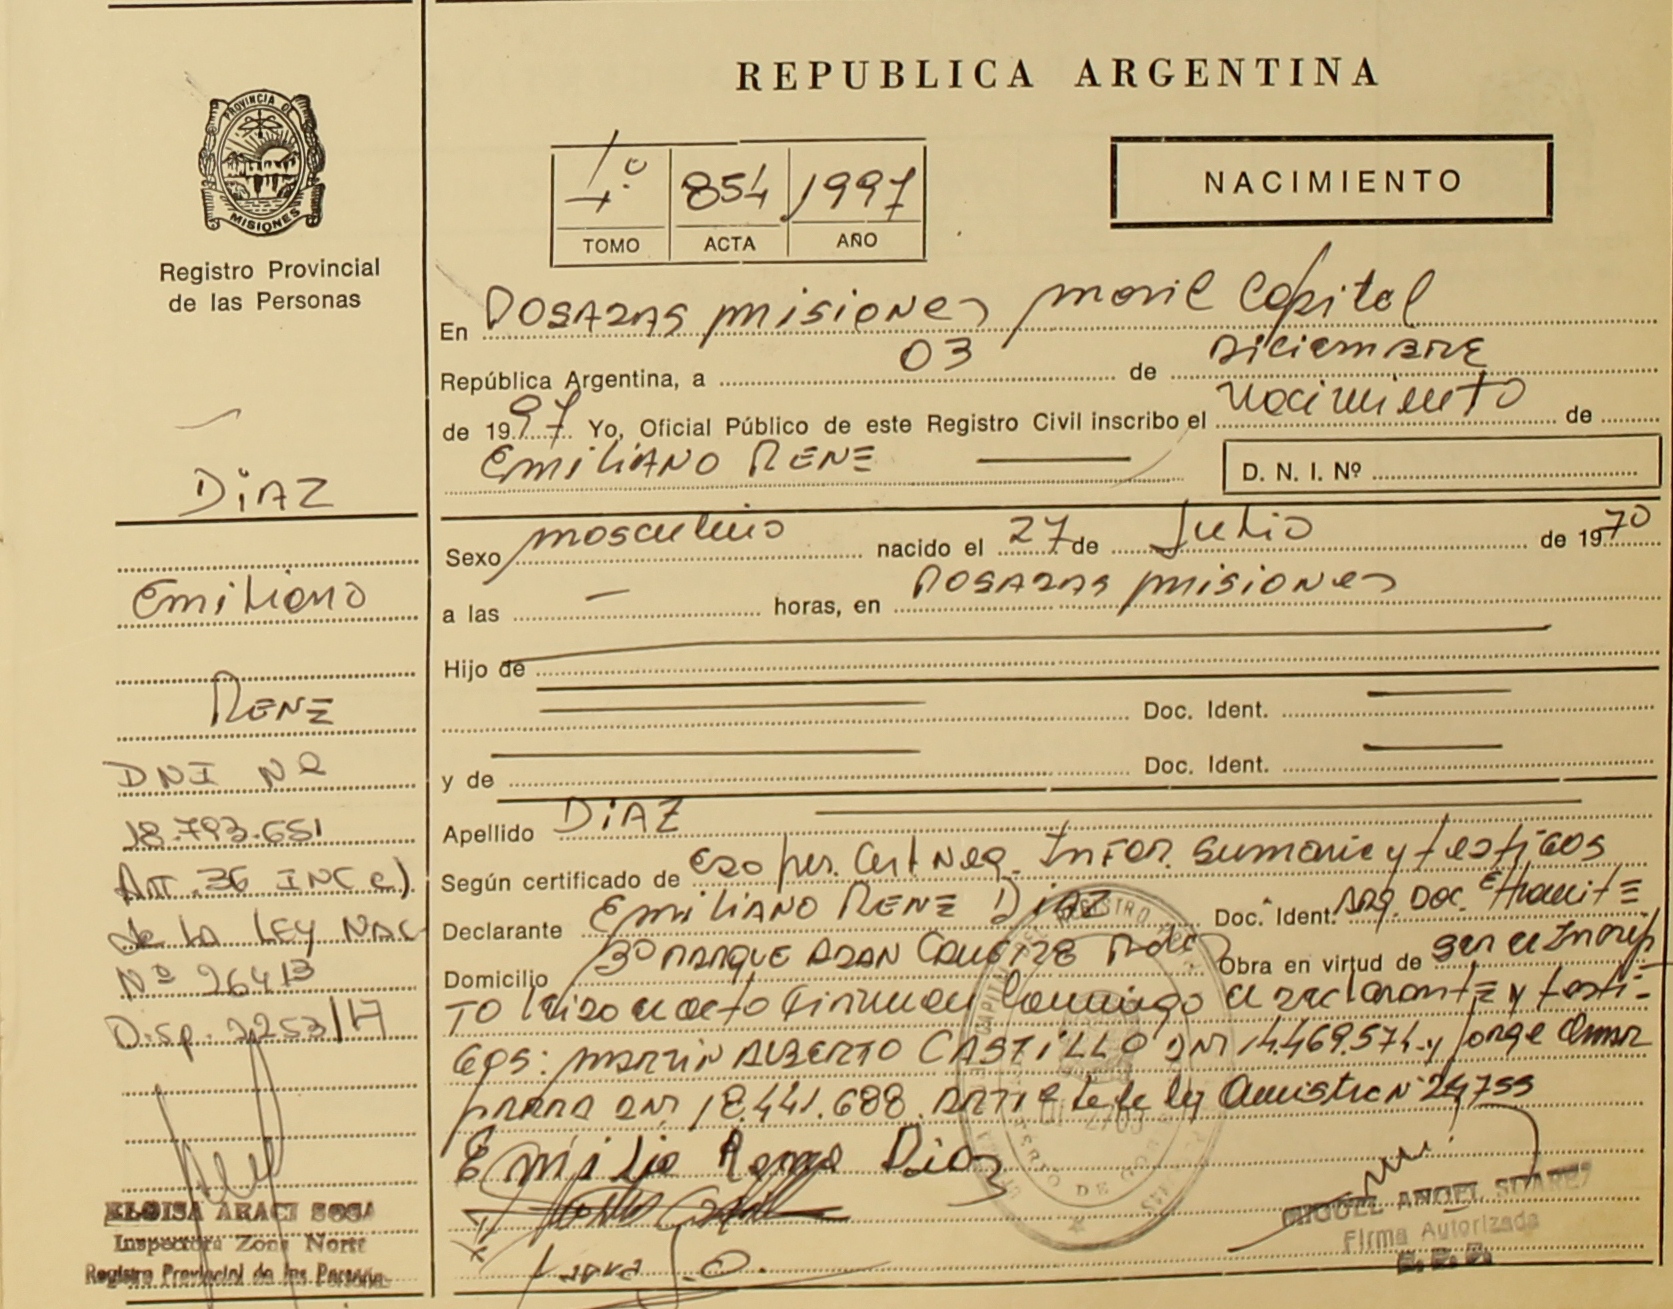 PROVINCIA DE
MISIONES
Registro Provincial
de las Personas
DiAZ
Emiliano
RENE
DNI Nº
18.793.651
Art. 36 INC c)
de la LEY NAC
Nº 26413
Disp. 2253/17
ELOISA ARACI SOSA
Inspectora Zona Norte
Registro Provincial de las Personas
REPUBLICA ARGENTINA
1º 854 1997
TOMO ACTA AÑO
NACIMIENTO
En POSADAS misiones movil Capital
República Argentina, a 03 de Diciembre
de 1997 Yo, Oficial Público de este Registro Civil inscribo el Nacimiento de
EmiliANO RENE
D. N. I. Nº
Sexo masculino nacido el 27 de Julio de 1970
a las — horas, en POSADAS misiones
Hijo de
Doc. Ident.
y de Doc. Ident.
Apellido DiAZ
Según certificado de Cert Neg. Infor. Sumaria y testigos
Declarante EmiliANO RENE DiAZ Doc. Ident. Arg. Doc. E/tramite
Domicilio Obra en virtud de ser el Inscrip
TO leido el acto firman conmigo el declarante y testi-
gos: MARTIN ALBERTO CASTILLO DNI 14.469.574 y Jorge Omar
PARRA DNI 18.441.688. de la ley Amistia Nº 24755
Emilio Diaz
Parra O.
MIGUEL ANGEL SUAREZ
Firma Autorizada